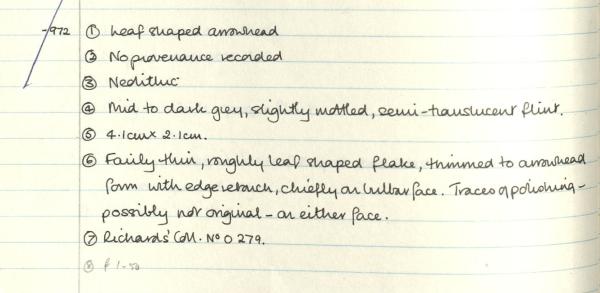 -/972 ① Leaf shaped arrowhead
② No provenance recorded
③ Neolithic
④ Mid to dark grey, slightly mottled, semi-translucent flint.
⑤ 4.1cm x 2.1cm.
⑥ Fairly thin, roughly leaf shaped flake, trimmed to arrowhead
form with edge retouch, chiefly on bulbar face. Traces of polishing -
possibly not original - on either face.
⑦ Richards' Coll. No 0279.
⑧ £1-50